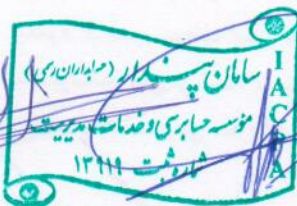 سامان پندار (حسابداران رسمی)
مؤسسه حسابرسی و خدمات مدیریت
شماره ثبت ۱۳۹۱۹
IACPA